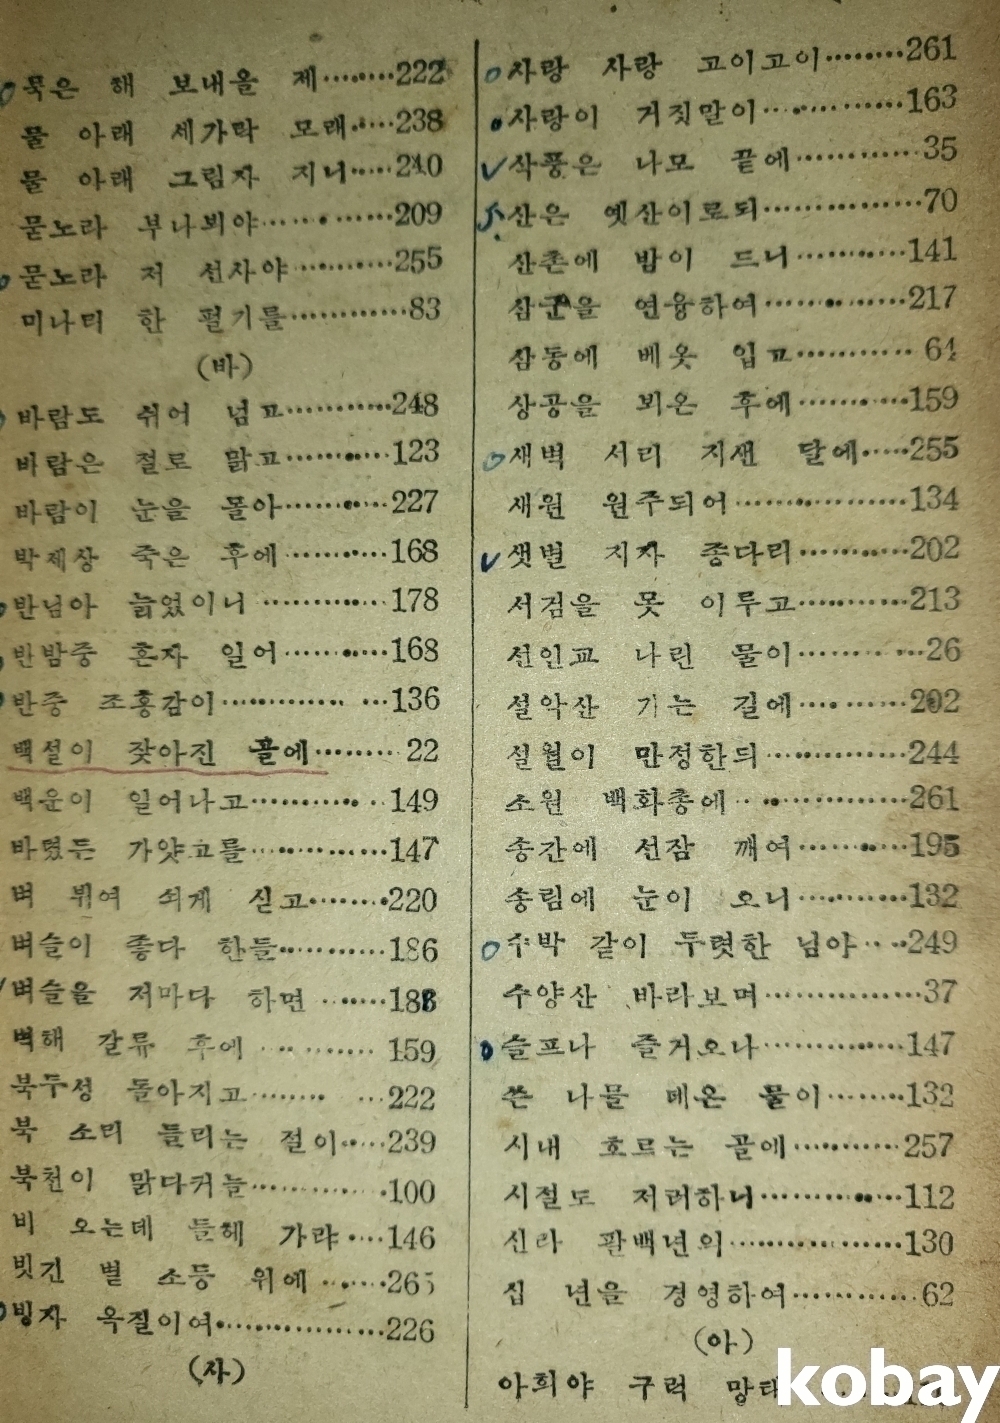 묵은 해 보내올 제········222
물 아래 세가락 모래·····238
물 아래 그림자 지니·····240
묻노라 부나븨야············209
묻노라 저 선사야··········255
미나리 한 펄기를············83
(바)
바람도 쉬어 넘고···········248
바람은 절로 맑고···········123
바람이 눈을 몰아···········227
박제상 죽은 후에···········168
반님아 늙었이니 ···········178
반밤중 혼자 일어···········168
반중 조홍감이··············136
백설이 잦아진 골에········· 22
백운이 일어나고············149
바렸든 가얏고를············147
벼 뷔여 쇠게 싣고········220
벼슬이 좋다 한들···········186
벼슬을 저마다 하면 ·······188
벽해 갈류 후에 ·········· 159
북두성 돌아지고········ ···222
북 소리 들리는 절이·····239
북천이 맑다커늘············100
비 오는데 들헤 가랴·····146
빗긴 별 소등 위에 ······265
빙자 옥질이여··············226
(사)
사랑 사랑 고이고이········261
사랑이 거짓말이············163
삭풍은 나모 끝에············35
산은 옛산이로되···············70
산촌에 밤이 드니···········141
삼군을 연융하여············217
삼동에 베옷 입고··········· 64
상공을 뵈온 후에···········159
새벽 서리 지샌 달에·····255
새원 원주되어··············134
샛별 지자 종다리···········202
서검을 못 이루고···········213
선인교 나린 물이········ ···26
설악산 가는 길에···········202
설월이 만정한듸············244
소원 백화총에··············261
송간에 선잠 깨여···········195
송림에 눈이 오니···········132
수박 같이 두렷한 님아·····249
수양산 바라보며···············37
슬프나 즐거오나············147
쓴 나물 데온 물이········132
시내 흐르는 골에···········257
시절도 저러하니············112
신라 팔백년의··············130
십 년을 경영하여············62
(아)
아희야 구럭 망태
kobay